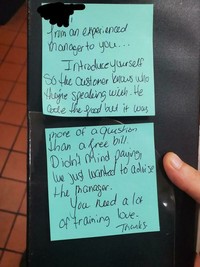 from an experienced
manager to you...
Introduce yourself
So the customer knows who
they're speaking with. He
ate the food but it was
more of a question
than a free bill.
Didn't mind paying
we just wanted to advise
the manager.
You need a lot
of training love.
Thanks